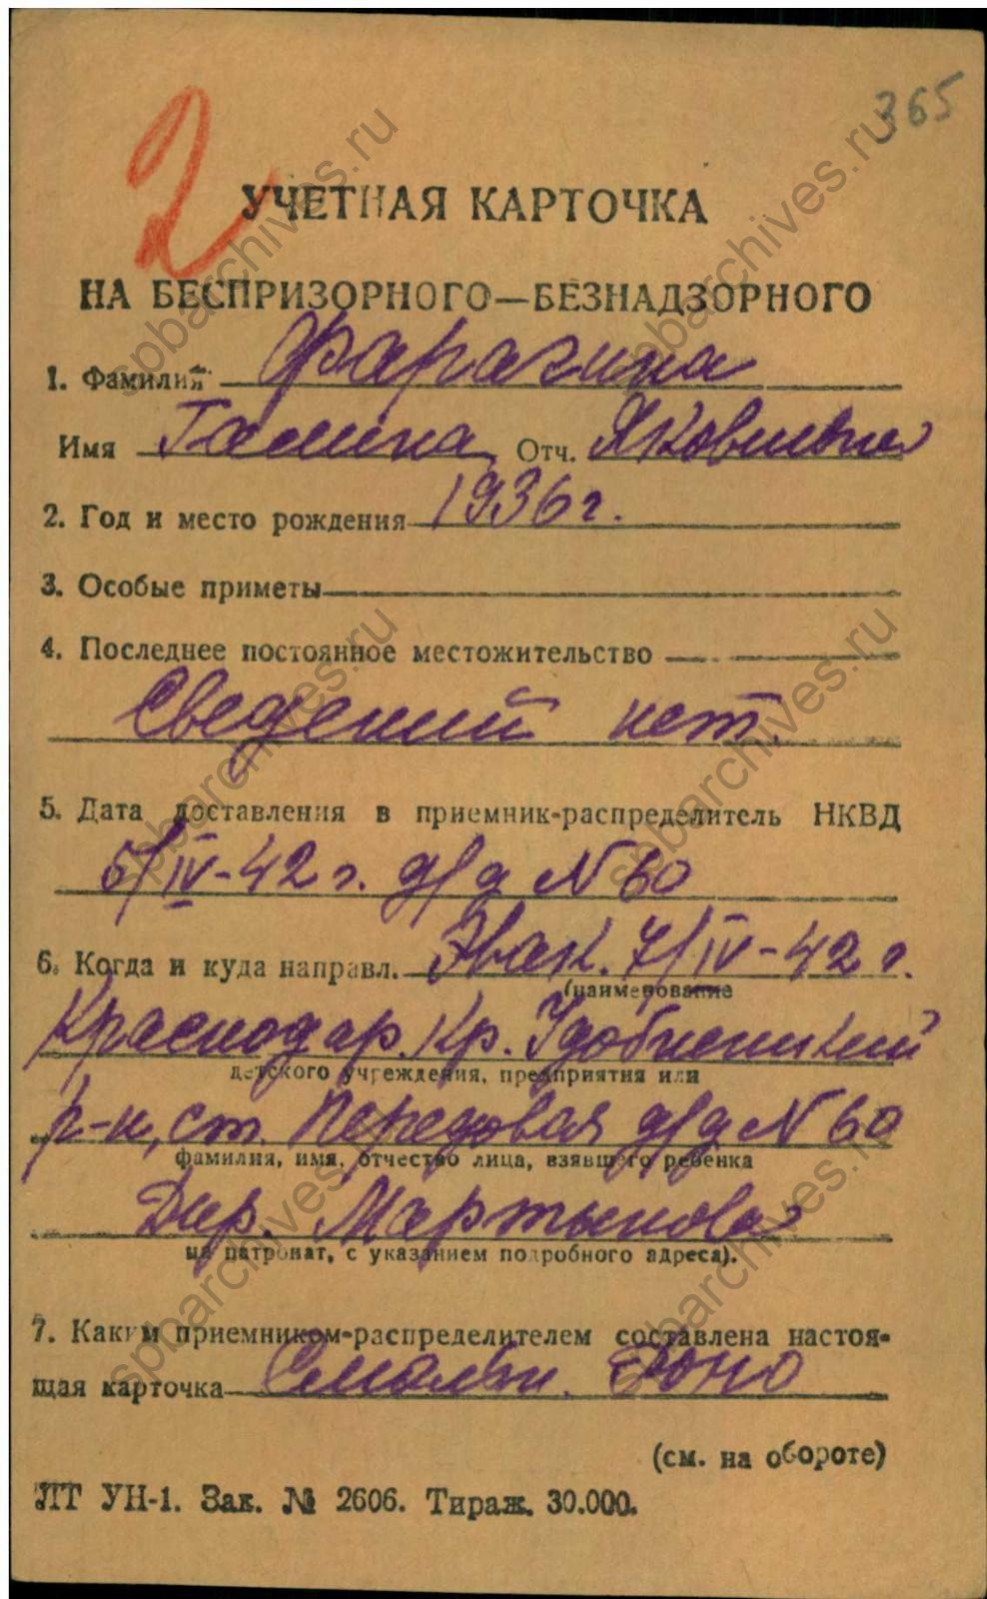 365
2
УЧЕТНАЯ КАРТОЧКА
НА БЕСПРИЗОРНОГО—БЕЗНАДЗОРНОГО
1. Фамилия Фарагина
Имя Галина Отч. Яковлевна
2. Год и место рождения 1936 г.
3. Особые приметы
4. Последнее постоянное местожительство
Сведений нет.
5. Дата доставления в приемник-распределитель НКВД
5/IV-42 г. д/д N 60
6. Когда и куда направл. Эвак. 7/IV-42 г.
(наименование
Краснодар. Кр. Удобненский
детского учреждения, предприятия или
р-н, ст. Передовая д/д N 60
фамилия, имя, отчество лица, взявшего ребенка
Дир. Мартынова
на патронат, с указанием подробного адреса).
7. Каким приемником-распределителем составлена настоя-
щая карточка Смольн. Роно
(см. на обороте)
ЛТ УН-1. Зак. № 2606. Тираж. 30.000.
spbarchives.ru
spbarchives.ru
spbarchives.ru
spbarchives.ru
spbarchives.ru
spbarchives.ru